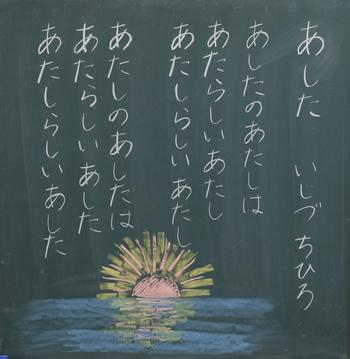 あした　いしづ ちひろ
あしたのあたしは
あたらしいあたし
あたしらしいあたし
あたしのあしたは
あたらしいあした
あたしらしいあした